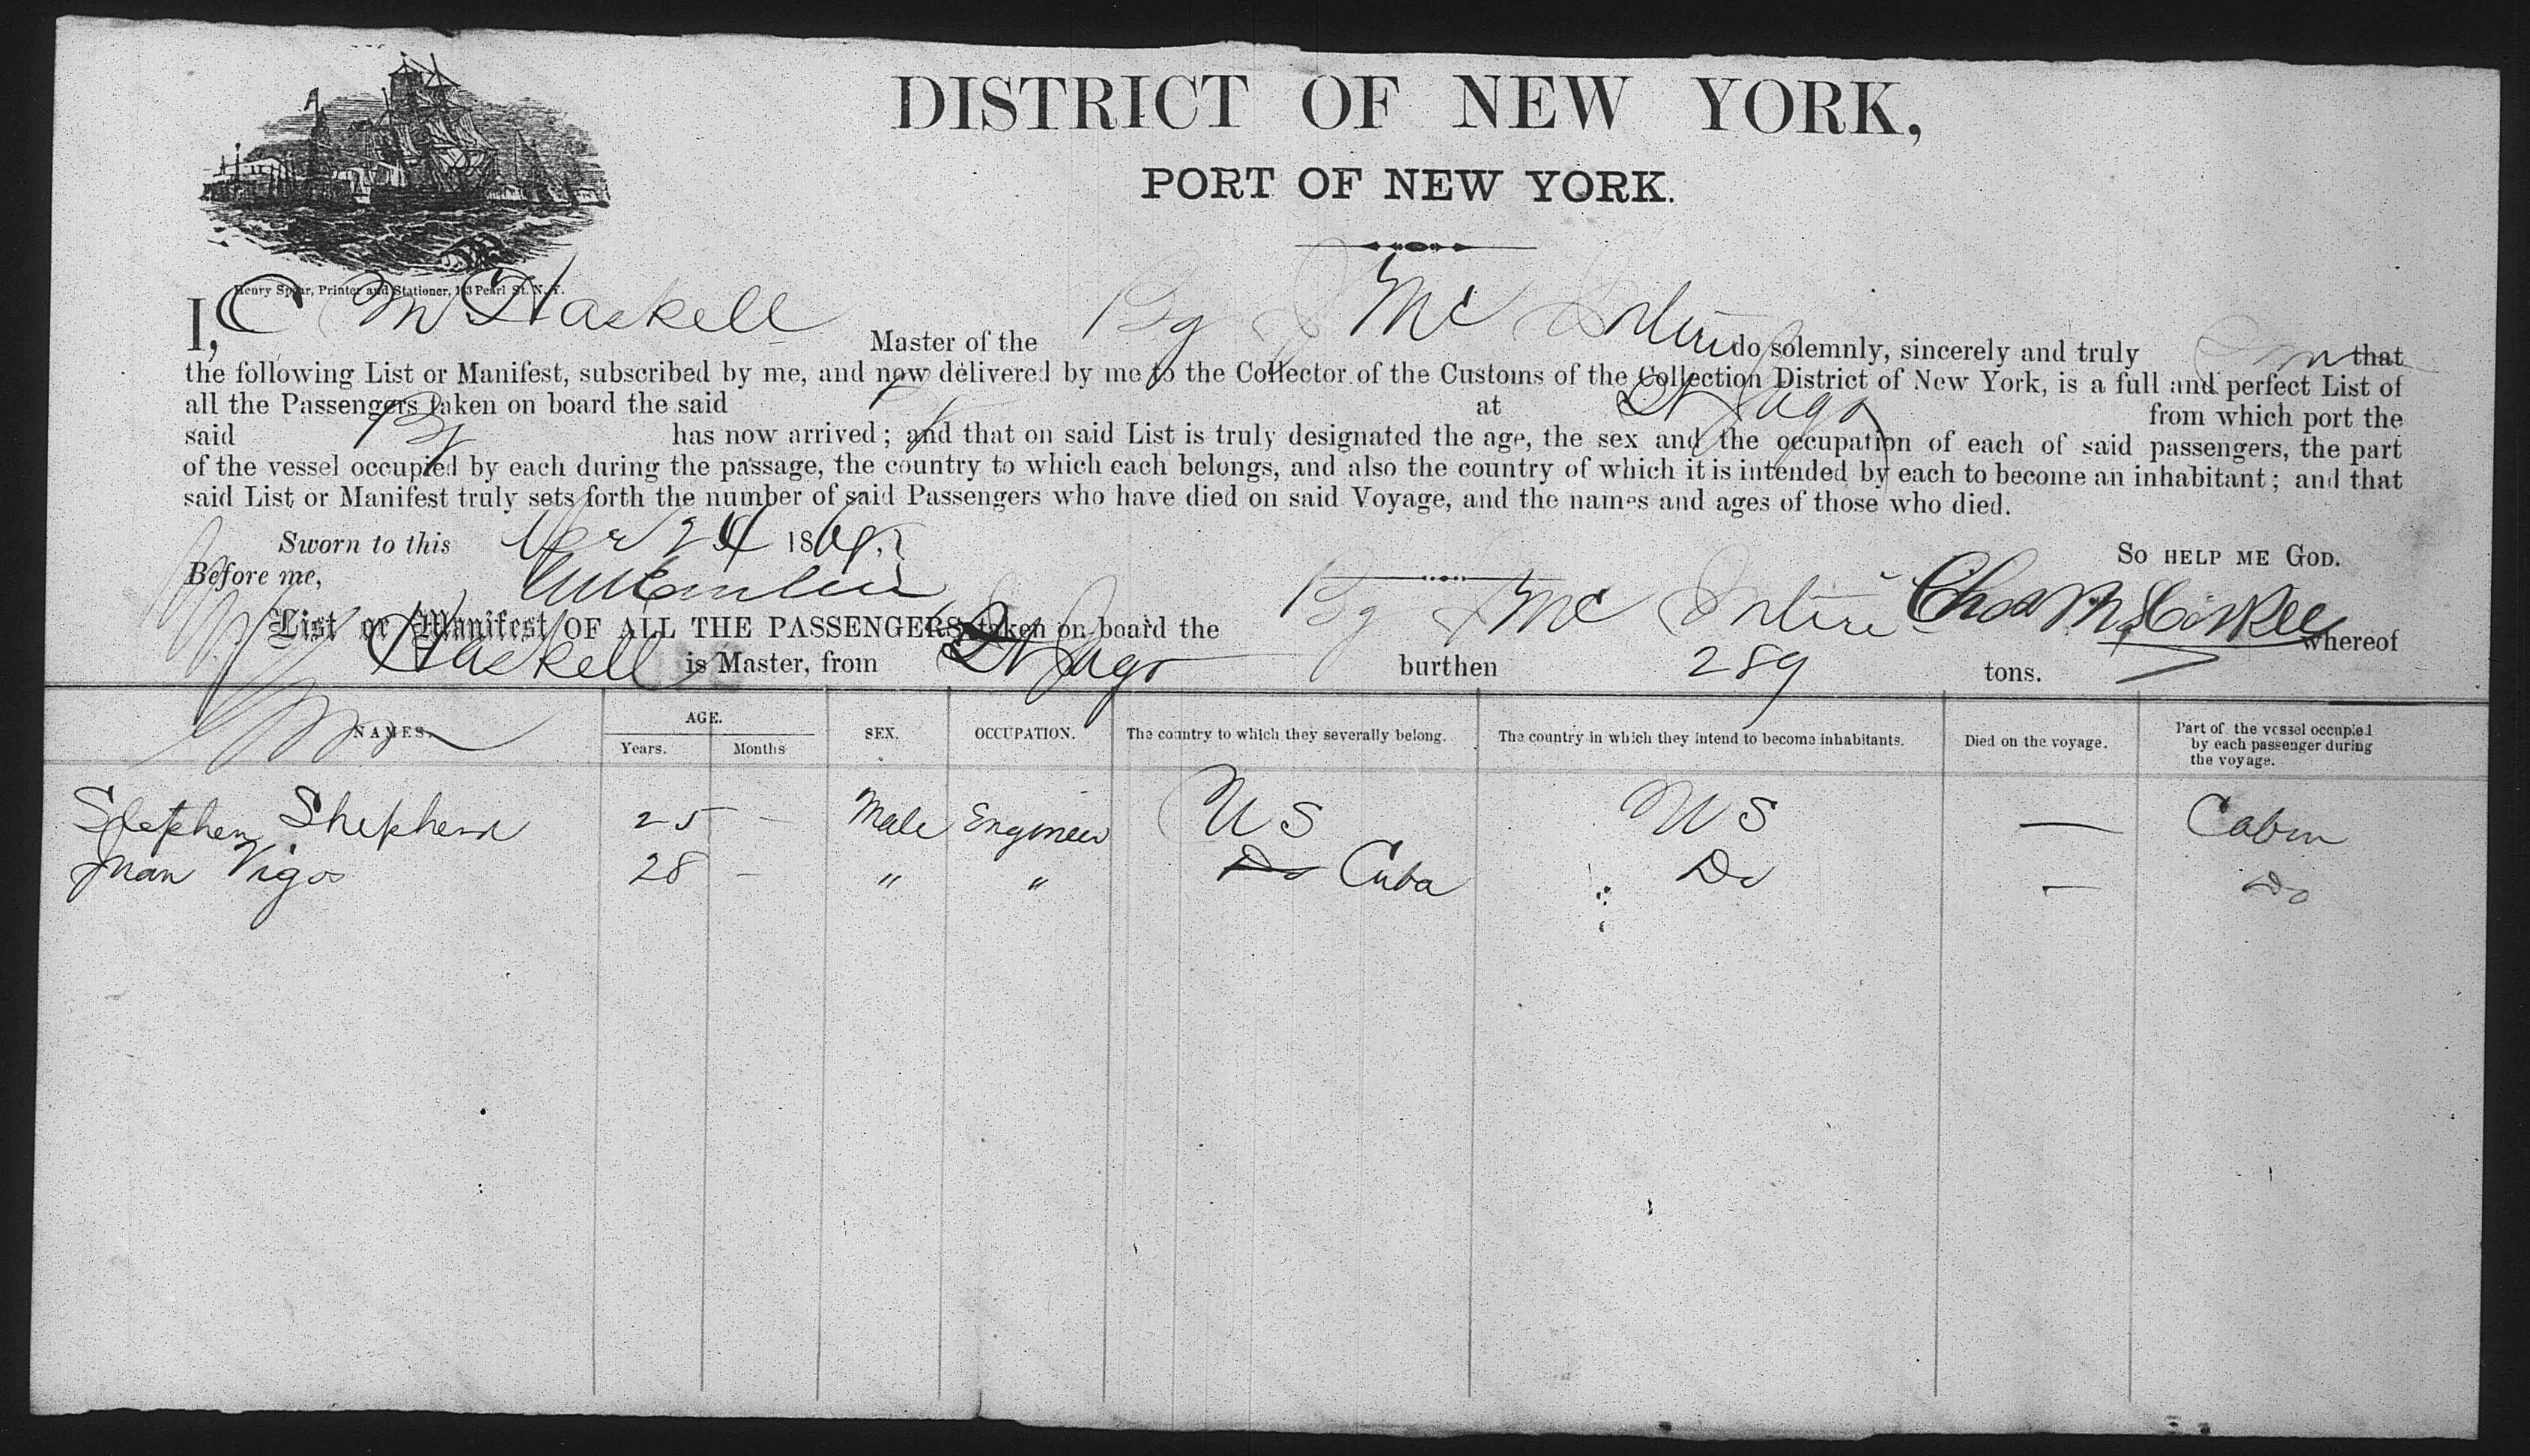 DISTRICT OF NEW YORK,
PORT OF NEW YORK.
Henry Spear, Printer and Stationer, 163 Pearl St. N. Y.
I, C M Haskell Master of the Bg J Mc Intire do solemnly, sincerely and truly that
the following List or Manifest, subscribed by me, and now delivered by me to the Collector of the Customs of the Collection District of New York, is a full and perfect List of
all the Passengers taken on board the said at St Jago from which port the
said Bg has now arrived; and that on said List is truly designated the age, the sex and the occupation of each of said passengers, the part
of the vessel occupied by each during the passage, the country to which each belongs, and also the country of which it is intended by each to become an inhabitant; and that
said List or Manifest truly sets forth the number of said Passengers who have died on said Voyage, and the names and ages of those who died.
Sworn to this 24 186
So help me God.
Before me,
Chas M Haskell
List or Manifest OF ALL THE PASSENGERS taken on board the Bg J Mc Intire whereof
Haskell is Master, from St Jago burthen 289 tons.
NAMES. AGE. Years. Months SEX. OCCUPATION. The country to which they severally belong. The country in which they intend to become inhabitants. Died on the voyage. Part of the vessel occupied by each passenger during the voyage.
Stephen Shepherd 25 - Male Engineer U S U S — Cabin
Juan Vigos 28 - " " Do Cuba Do — Do